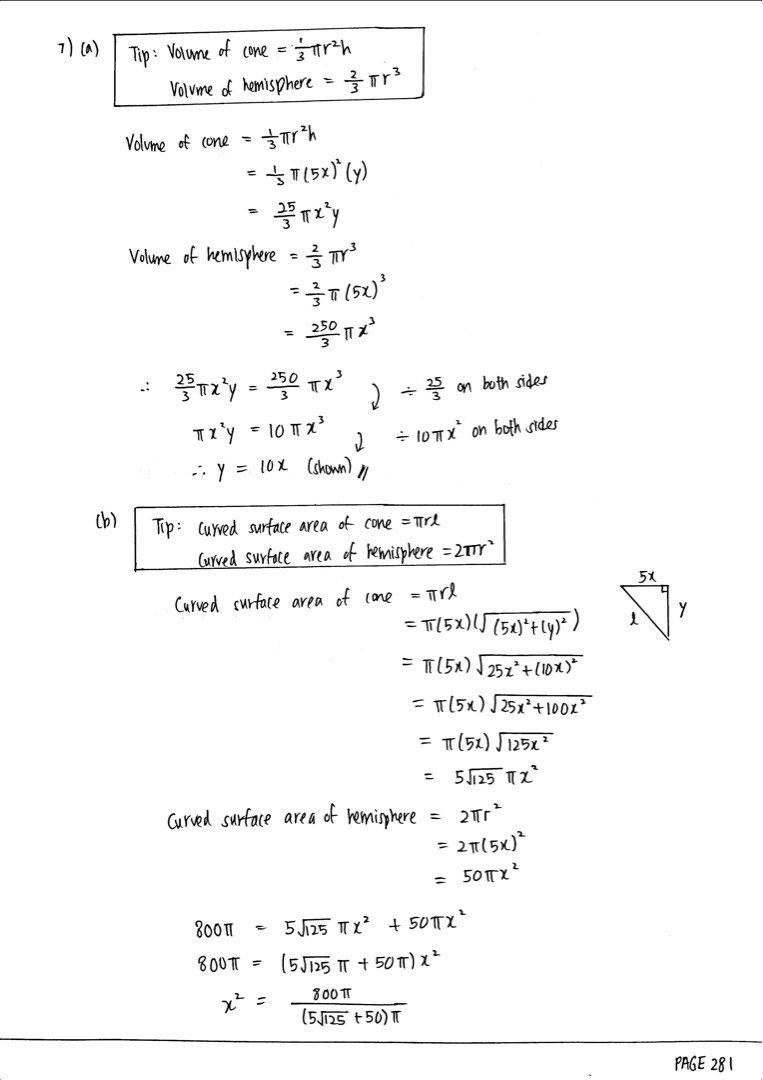 7) (a) Tip: Volume of cone = 1/3 πr²h
Volume of hemisphere = 2/3 πr³
Volume of cone = 1/3 πr²h
= 1/3 π(5x)²(y)
= 25/3 πx²y
Volume of hemisphere = 2/3 πr³
= 2/3 π(5x)³
= 250/3 πx³
∴ 25/3 πx²y = 250/3 πx³ ÷ 25/3 on both sides
πx²y = 10πx³ ÷ 10πx² on both sides
∴ y = 10x (shown) //
(b) Tip: Curved surface area of cone = πrl
Curved surface area of hemisphere = 2πr²
5x
Curved surface area of cone = πrl
l y
= π(5x)(√((5x)²+(y)²))
= π(5x)√(25x²+(10x)²)
= π(5x)√(25x²+100x²)
= π(5x)√(125x²)
= 5√125 πx²
Curved surface area of hemisphere = 2πr²
= 2π(5x)²
= 50πx²
800π = 5√125 πx² + 50πx²
800π = (5√125 π + 50π)x²
x² = 800π/((5√125 + 50)π)
PAGE 281